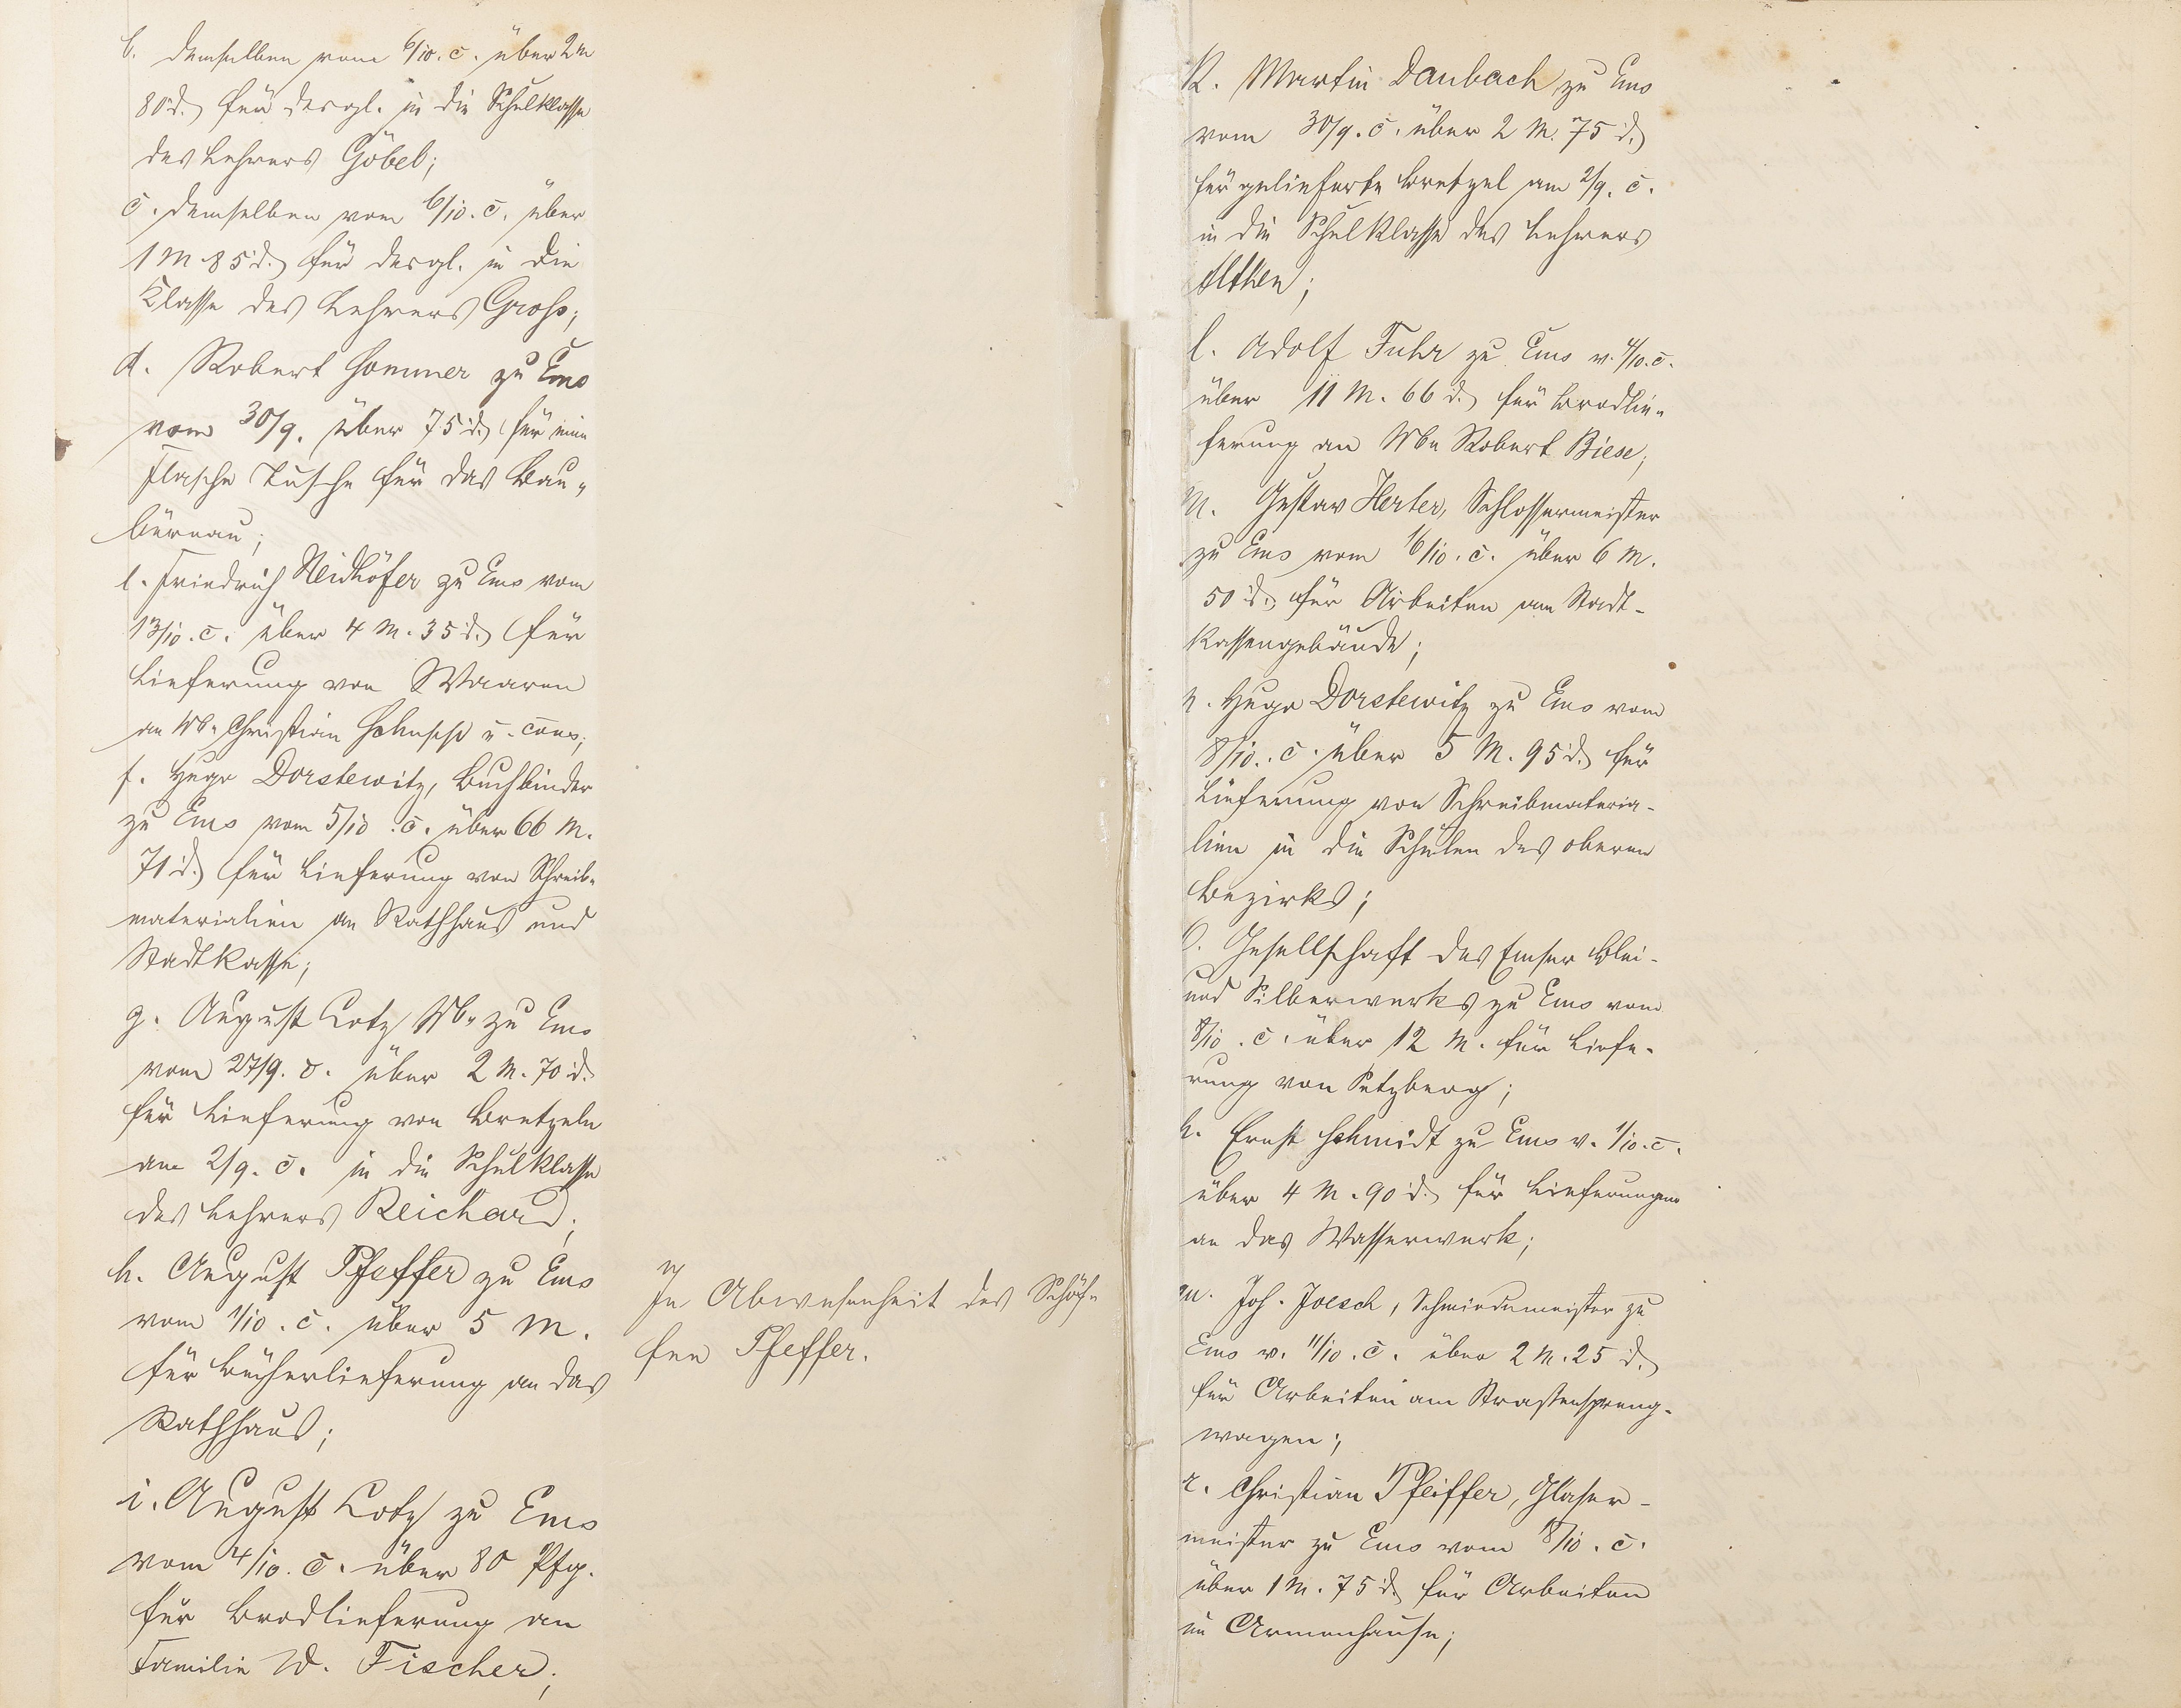 b. demselben vom 6/10. c. über 2 M
80 d. für desgl. in die Schulklasse
des Lehrers Göbel;
c. demselben vom 6/10. c. über
1 M 85 d. für desgl. in die
Klasse des Lehrers Groß;
d. Robert Sommer zu Ems
vom 30/9. über 75 d. für eine
Flasche Tusche für das Bau-
büreau;
e. Friedrich Neidhöfer zu Ems vom
13/10. c. über 4 M. 35 d. für
Lieferung von Waaren
an Wb. Christian u. cons;
f. Hugo Dorstewitz, Buchbinder
zu Ems vom 5/10. c. über 66 M.
71 d. für Lieferung von Schreib-
materialien an Rathhaus und
Stadtkasse;
g. August Lotz Wb. zu Ems
vom 27/9. c. über 2 M. 70 d.
für Lieferung von Bretzeln
am 2/9. c. in die Schulklasse
des Lehrers Reichard;
h. August Pfeffer zu Ems
vom 1/10. c. über 5 M.
für Bücherlieferung an das
Rathhaus;
i. August Lotz zu Ems
vom 4/10. c. über 80 Pfg.
für Brodlieferung an
Familie W. Fischer;
In Abwesenheit des Schöf-
fen Pfeffer.
k. Martin Daubach zu Ems
vom 30/9. c. über 2 M. 75 d.
für gelieferte Bretzel am 2/9. c.
in die Schulklasse des Lehrers
Altken;
l. Adolf Fuhr zu Ems v. 4/10. c.
über 11 M. 66 d. für Brodlie-
ferung an Wb. Robert Biese;
m. Gustav Herter, Schlossermeister
zu Ems vom 16/10. c. über 6 M.
50 d. für Arbeiten am Stadt-
kassengebäude;
n. Hugo Dorstewitz zu Ems vom
8/10. c. über 5 M. 95 d. für
Lieferung von Schreibmateria-
lien in die Schulen des oberen
Bezirks;
o. Gesellschaft des Emser Blei-
und Silberwerks zu Ems vom
8/10. c. über 12 M. für Liefe-
rung von Setzberg;
p. Ernst Schmidt zu Ems v. 1/10. c.
über 4 M. 90 d. für Lieferungen
an das Wasserwerk;
Joh. Joesch, Schmiedemeister zu
Ems v. 11/10. c. über 2 M. 25 d.
für Arbeiten am Straßenspreng-
wagen;
r. Christian Pfeiffer, Glaser-
meister zu Ems vom 18/10. c.
über 1 M. 75 d. für Arbeiten
im Armenhause;